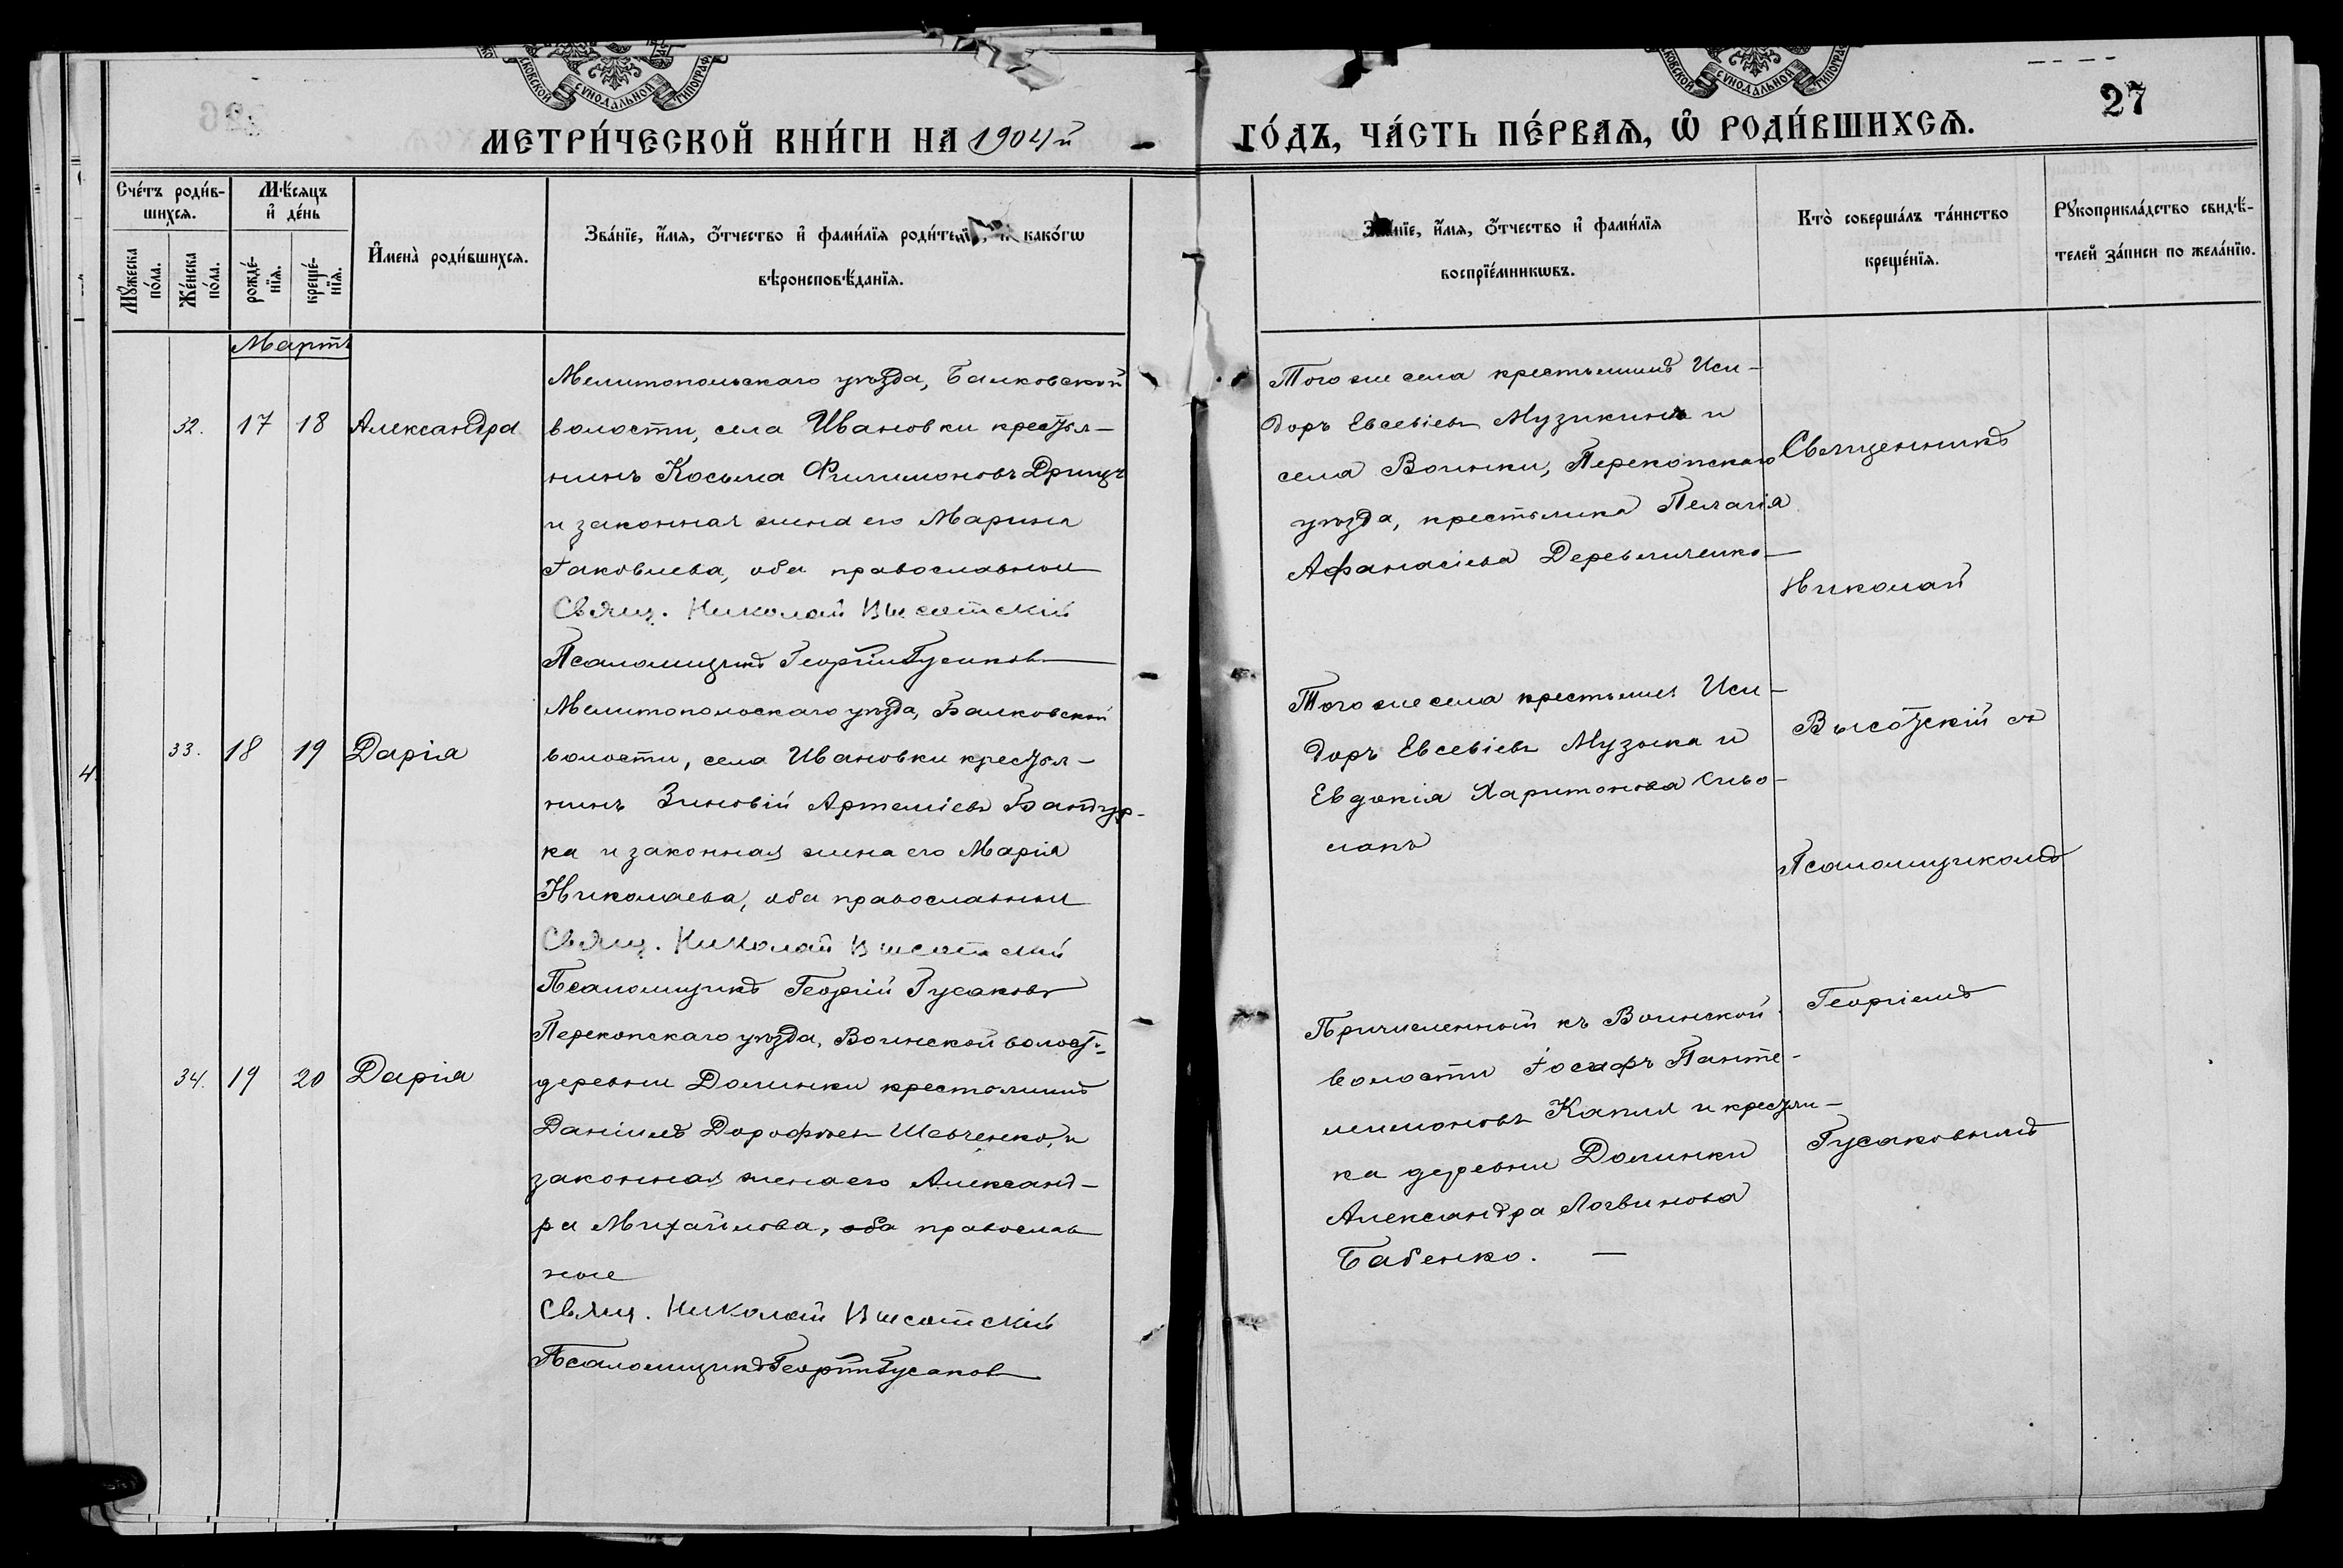 МЕТРИ́ЧЕСКОЙ КНИ́ГИ НА 1904й
ГО́ДЪ, ЧА́СТЬ ПЕ́РВАѦ, Ѿ РОДИ́ВШИХСѦ.
27
Сче́тъ роди́в-
шихсѧ.
Мѣ́сяцъ
и҆ де́нь
Мꙋ́жеска
по́ла.
Же́нска
по́ла.
рожде́-
нїѧ.
креще́-
нїѧ.
И҆мена̀ роди́вшихсѧ.
Зва́нїе, и҆́мѧ, ѻ҆́тчество и҆ фамі́лїѧ како́гѡ
вѣроисповѣ́данїѧ.
и҆́мѧ, ѻ҆́тчество и҆ фамі́лїѧ
воспрїе́мникѡвъ.
Кто̀ соверша́лъ та́инство
креще́нїѧ.
Рꙋкоприкла́дство свидѣ́-
телей за́писи по жела́нїю.
Мартъ
32. 17 18 Александра
Мелитопольскаго уѣзда, Балковской
волости, села Ивановки крестья-
нинъ Косьма Филимоновъ Дрищъ
и законная жена его Марина
Іаковлева, оба православные
Свящ. Николай Высотскій
Псаломщикъ Георгій Гусаковъ
Того же села крестьянинъ Иси-
доръ Евсевіевъ Музикинъ и
села Воинки, Перекопскаго
уѣзда, крестьянка Пелагія
Афанасіева Деревянченко
33. 18 19 Дарія
Мелитопольскаго уѣзда, Балковской
волости, села Ивановки крестья-
нинъ Зиновій Артеміевъ Бандур-
ка и законная жена его Марія
Николаева, оба православные
Свящ. Николай Высотскій
Псаломщикъ Георгій Гусаковъ
Того же села крестьянинъ Иси-
доръ Евсевіевъ Музыка и
Евдокія Харитонова Сиво-
лапъ
34. 19 20 Дарія
Перекопскаго уѣзда, Воинской волости
деревни Долинки крестьянинъ
Даніилъ Дорофѣевъ Шевченко, и
законная жена его Александ-
ра Михайлова, оба православ
ные
Свящ. Николай Высотскій
Псаломщикъ Георгій Гусаковъ
Причисленный къ Воинской
волости Іосафъ Панте-
леимоновъ Капля и крестьян-
ка деревни Долинки
Александра Логвинова
Бабенко.
Священникъ
Николай
Высотскій съ
Псаломщикомъ
Георгіемъ
Гусаковымъ
4